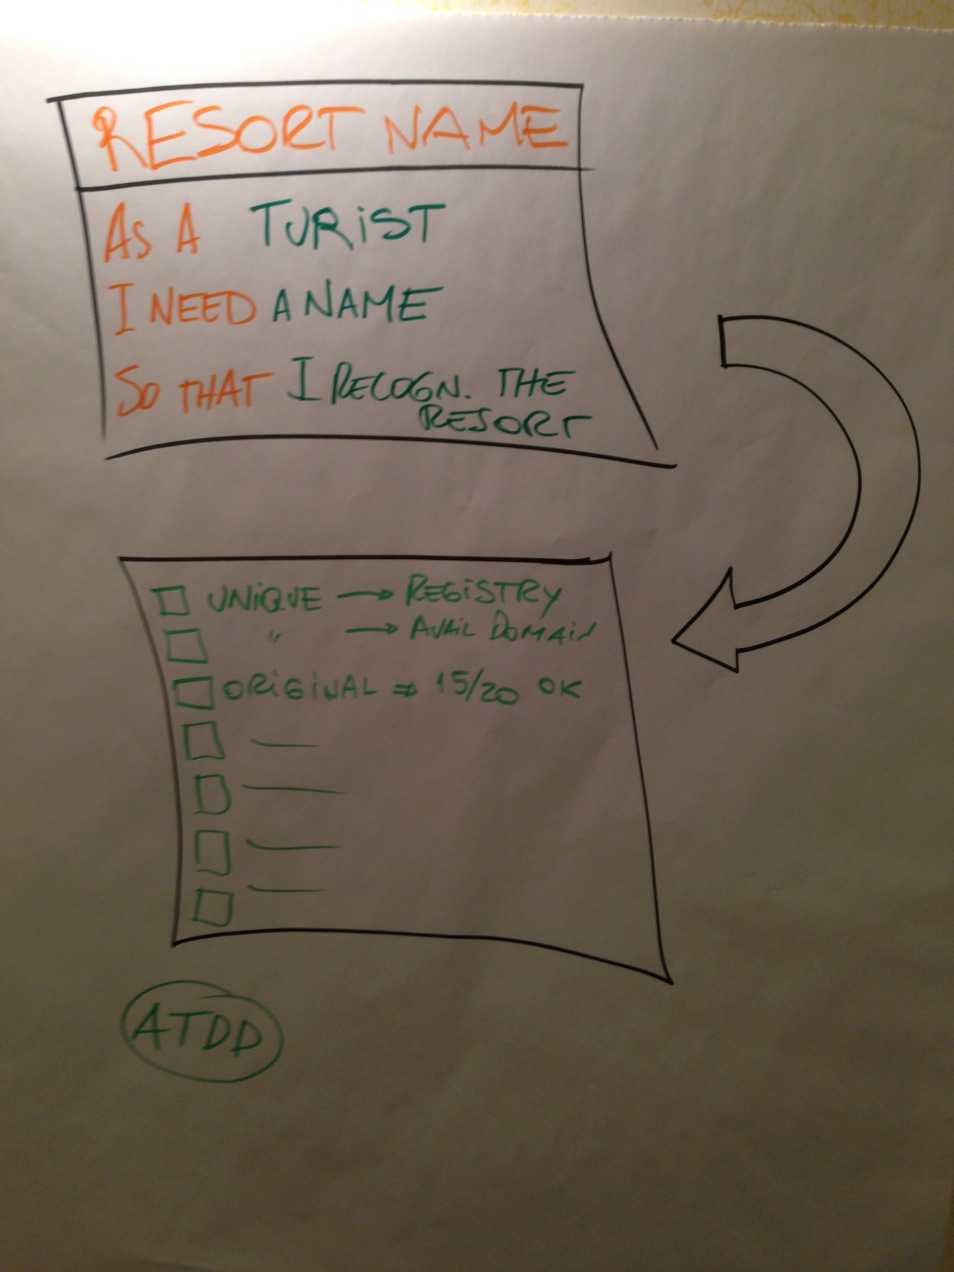 RESORT NAME
AS A TURIST
I NEED A NAME
SO THAT I RECOGN. THE
RESORT
UNIQUE → REGISTRY
" → AVAIL DOMAIN
ORIGINAL ⇒ 15/20 OK
ATDD